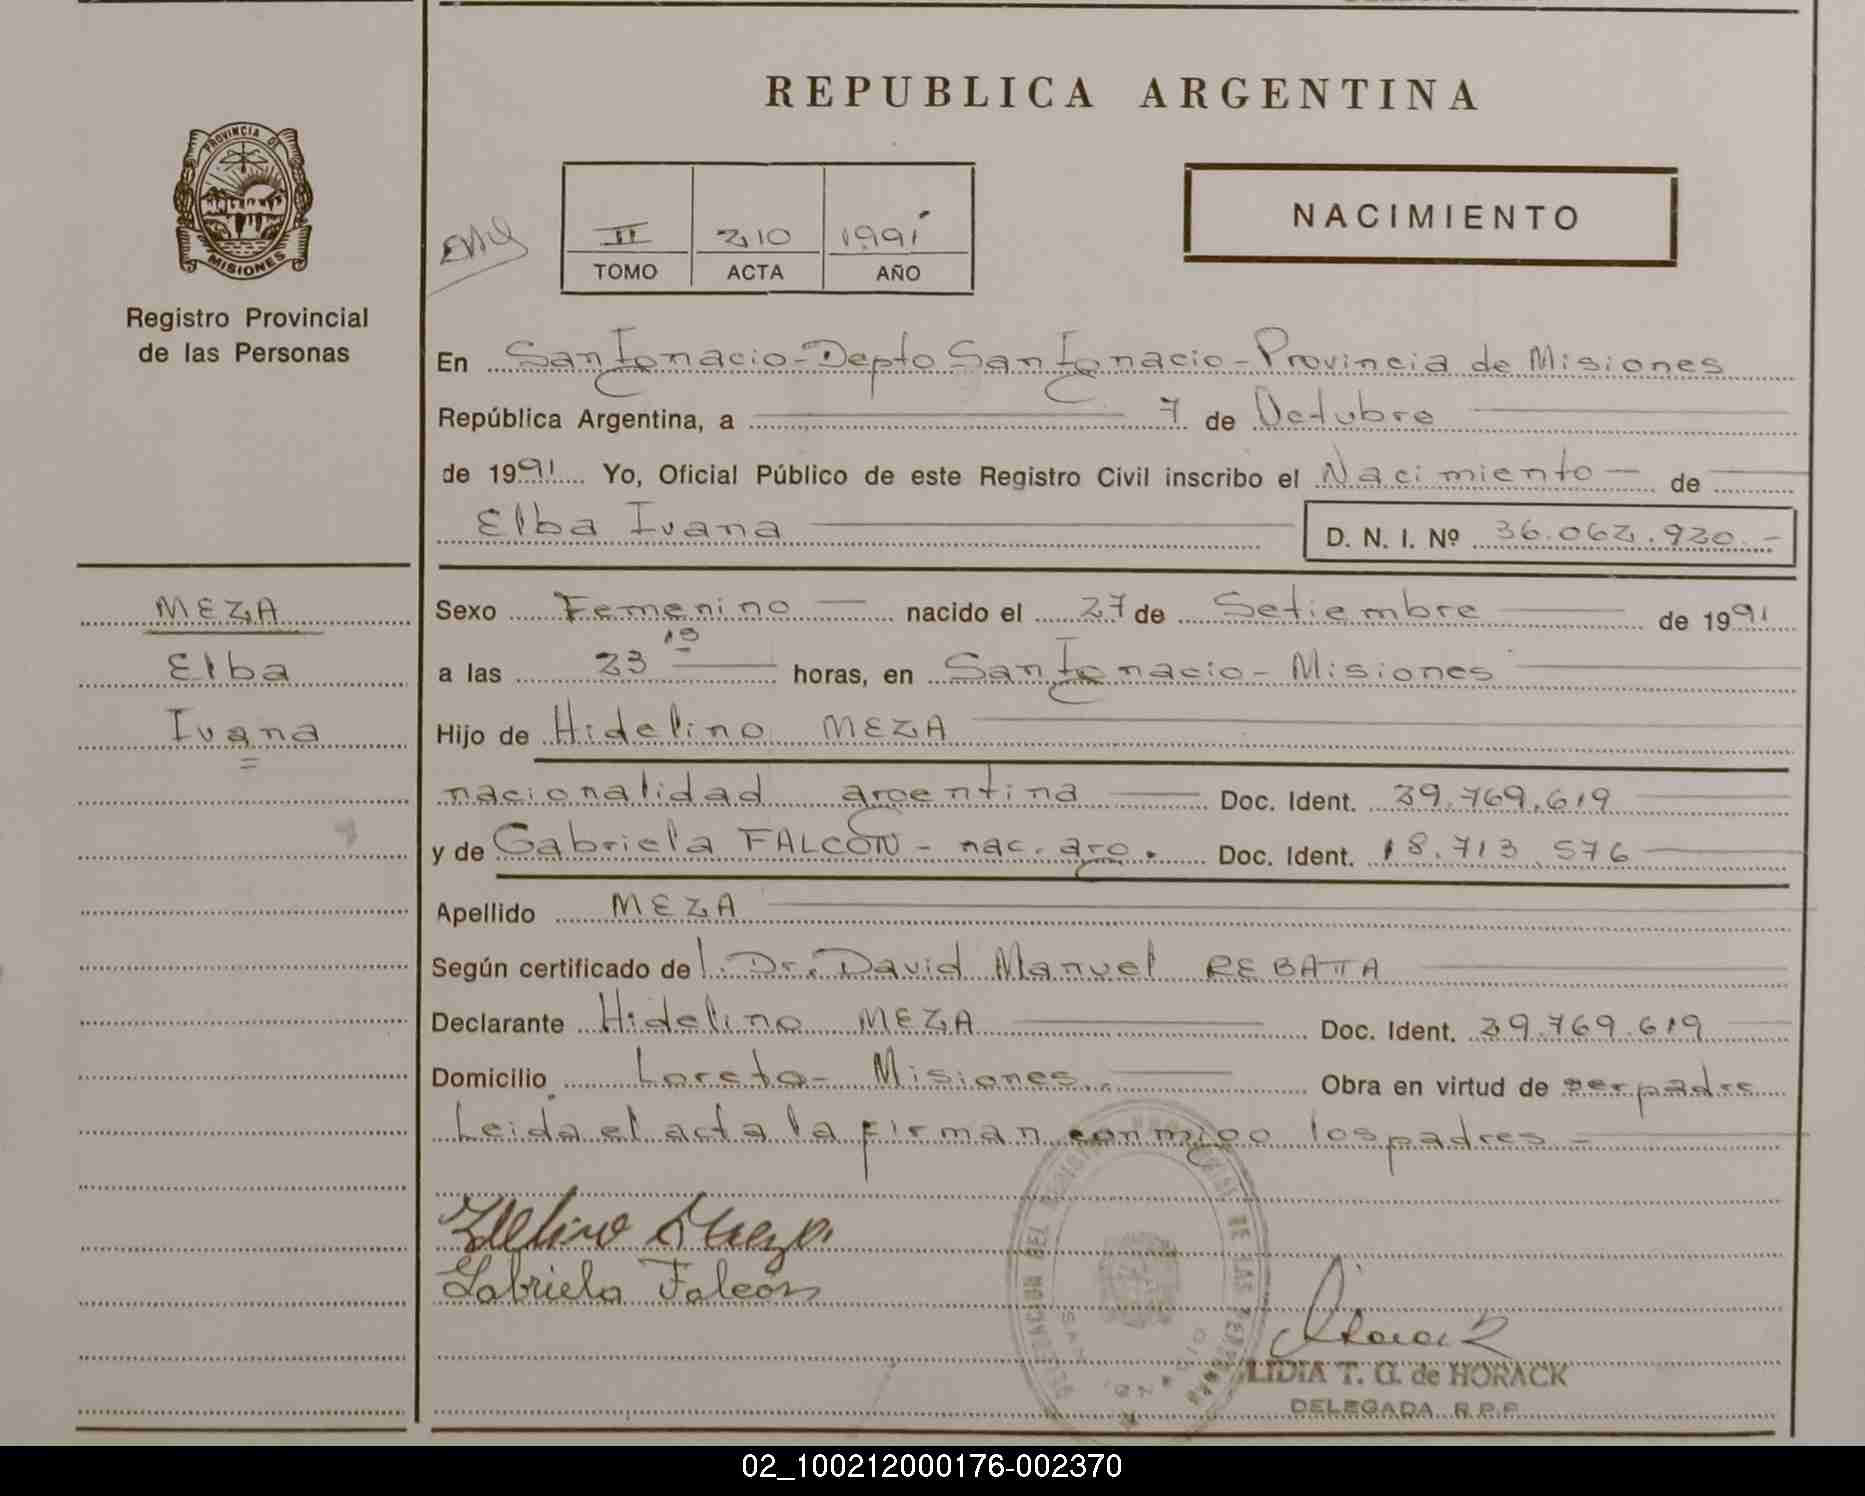 REPUBLICA ARGENTINA
PROVINCIA DE
MISIONES
Registro Provincial
de las Personas
II 210 1991
TOMO ACTA AÑO
NACIMIENTO
En San Ignacio - Depto San Ignacio - Provincia de Misiones
República Argentina, a 7 de Octubre
de 1991 Yo, Oficial Público de este Registro Civil inscribo el Nacimiento - de
Elba Ivana D. N. I. Nº 36.062.920.-
MEZA
Elba
Ivana
Sexo Femenino nacido el 27 de Setiembre de 1991
a las 23 15 horas, en San Ignacio - Misiones
Hijo de Hidelino MEZA
nacionalidad argentina Doc. Ident. 29.769.619
y de Gabriela FALCON - nac. arg. Doc. Ident. 18.713.576
Apellido MEZA
Según certificado del Dr. David Manuel REBATTA
Declarante Hidelino MEZA Doc. Ident. 29.769.619
Domicilio Loreto - Misiones Obra en virtud de ser padre
Leida el acta la firman conmigo los padres -
Gabriela Falcón
LIDIA T. G. de HORACK
DELEGADA R.P.P.
02_100212000176-002370